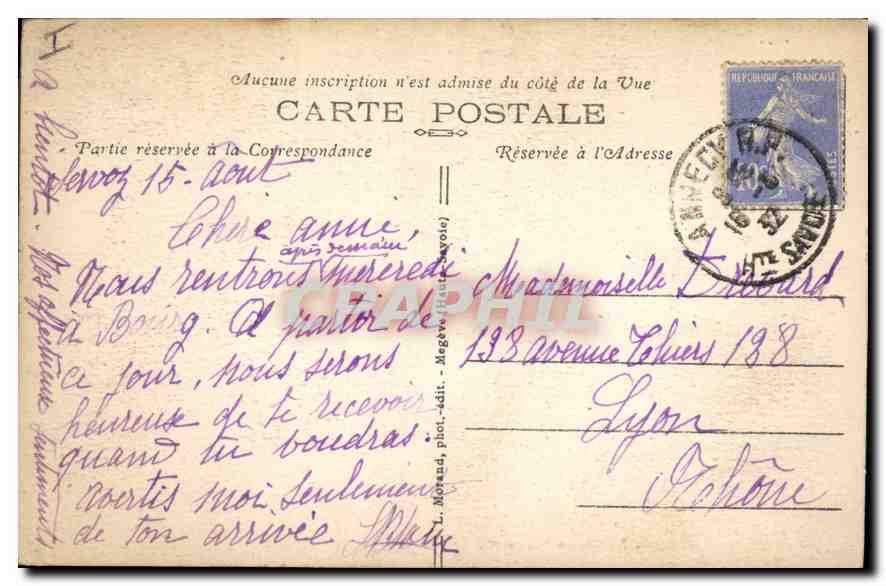 Aucune inscription n'est admise du côté de la Vue
CARTE POSTALE
Partie réservée à la Correspondance
Réservée à l'Adresse
Servoz 15 - Août
Chère amie,
après demain
Nous rentrons mercredi
à Bourg. A partir de
ce jour, nous serons
heureuse de te recevoir
quand tu voudras.
avertis moi seulement
de ton arrivée
A bientôt. Nos affectueux sentiments
L. Morand, phot.-édit. - Megève (Haute-Savoie)
Mademoiselle
198 avenue Thiers 198
Lyon
Rhône
REPUBLIQUE FRANÇAISE
POSTES
ANNECY R.P.
16
32
HTE SAVOIE
CPAPHIL